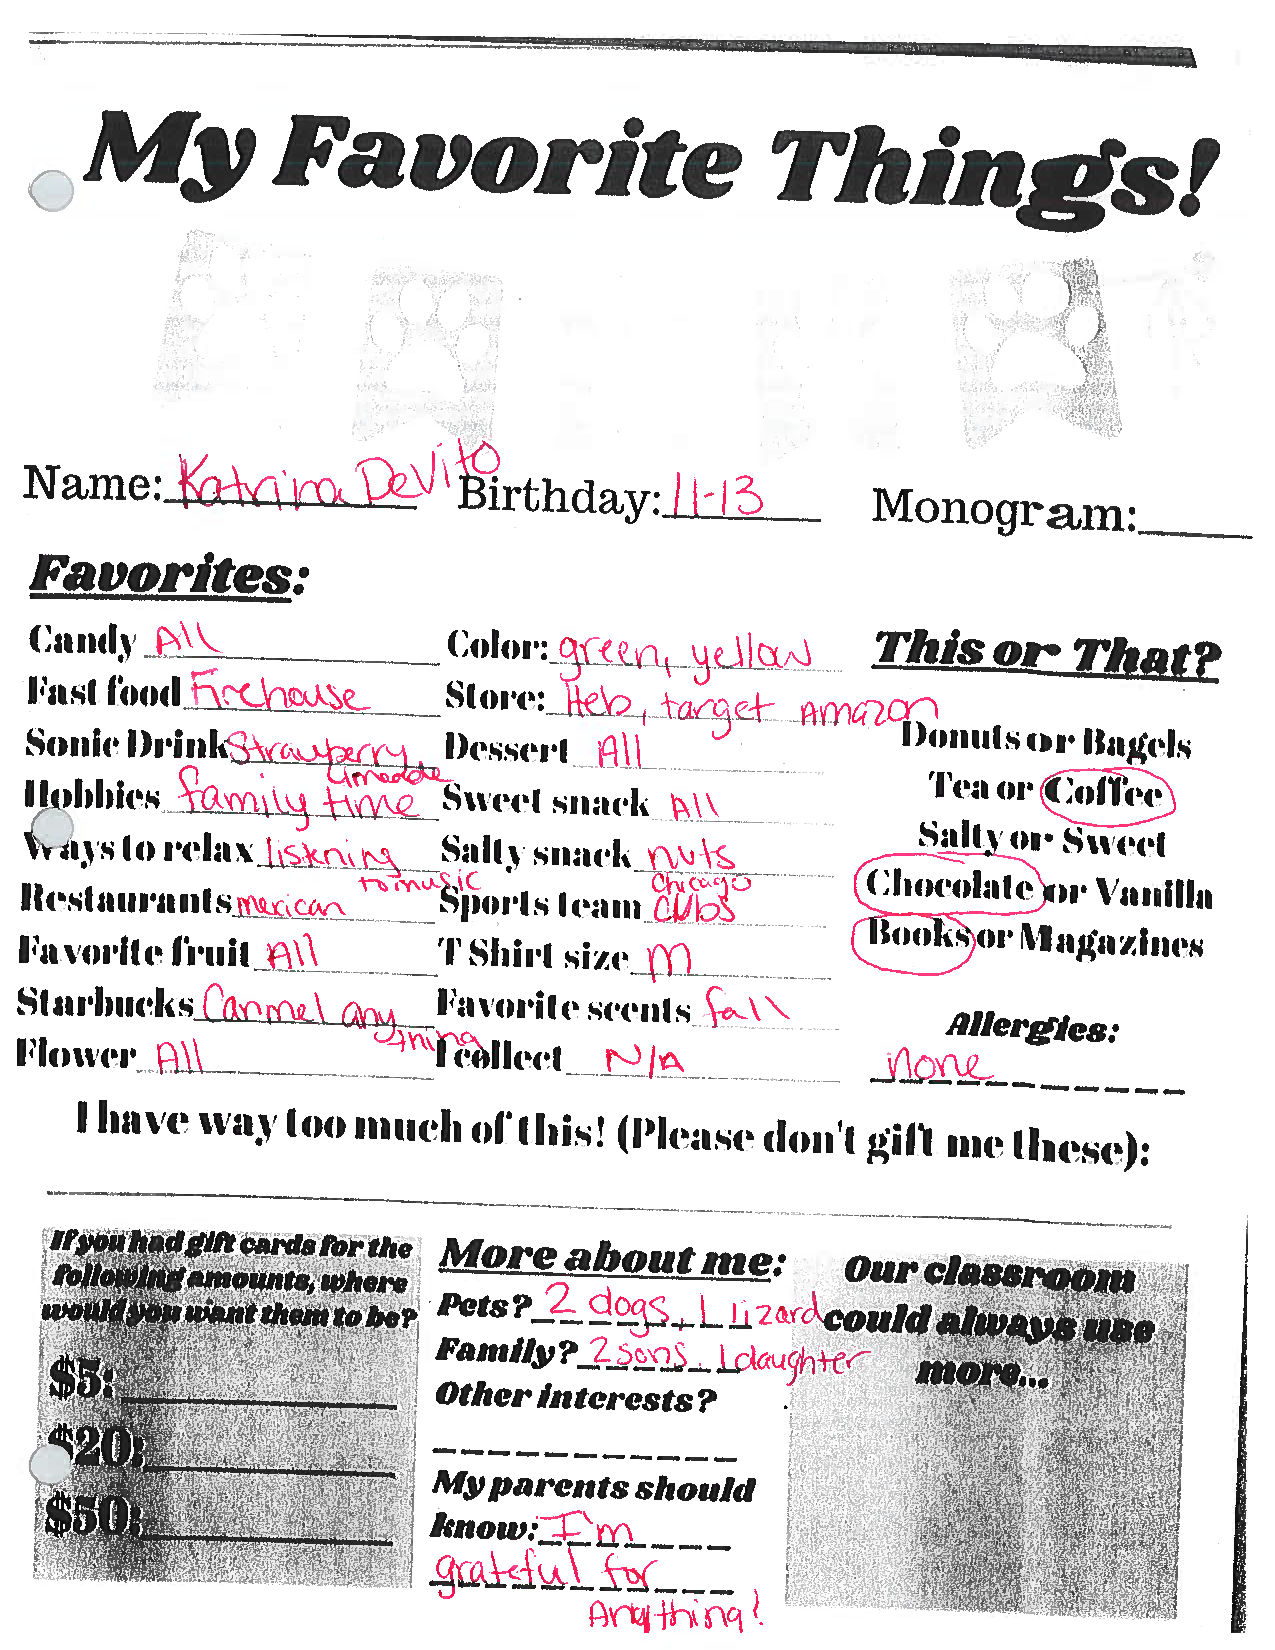 My Favorite Things!
Name: Katrina DeVito Birthday: 11-13 Monogram:
Favorites:
Candy All
Color: green, yellow
This or That?
Fast food Firehouse
Store: Heb, target Amazon
Donuts or Bagels
Sonic Drink Strawberry
limeade
Dessert All
Tea or Coffee
Hobbies family time
Sweet snack All
Salty or Sweet
Ways to relax listning
to music
Salty snack nuts
Chocolate or Vanilla
Restaurants mexican
Sports team Chicago
Cubs
Books or Magazines
Favorite fruit All
T Shirt size M
Starbucks Carmel any
thing
Favorite scents fall
Allergies:
none
Flower All
I collect N/A
I have way too much of this! (Please don't gift me these):
If you had gift cards for the
following amounts, where
would you want them to be?
$5:
$20:
$50:
More about me:
Pets? 2 dogs, 1 lizard
Family? 2 sons, 1 daughter
Other interests?
My parents should
know: I'm
grateful for
Anything!
Our classroom
could always use
more...